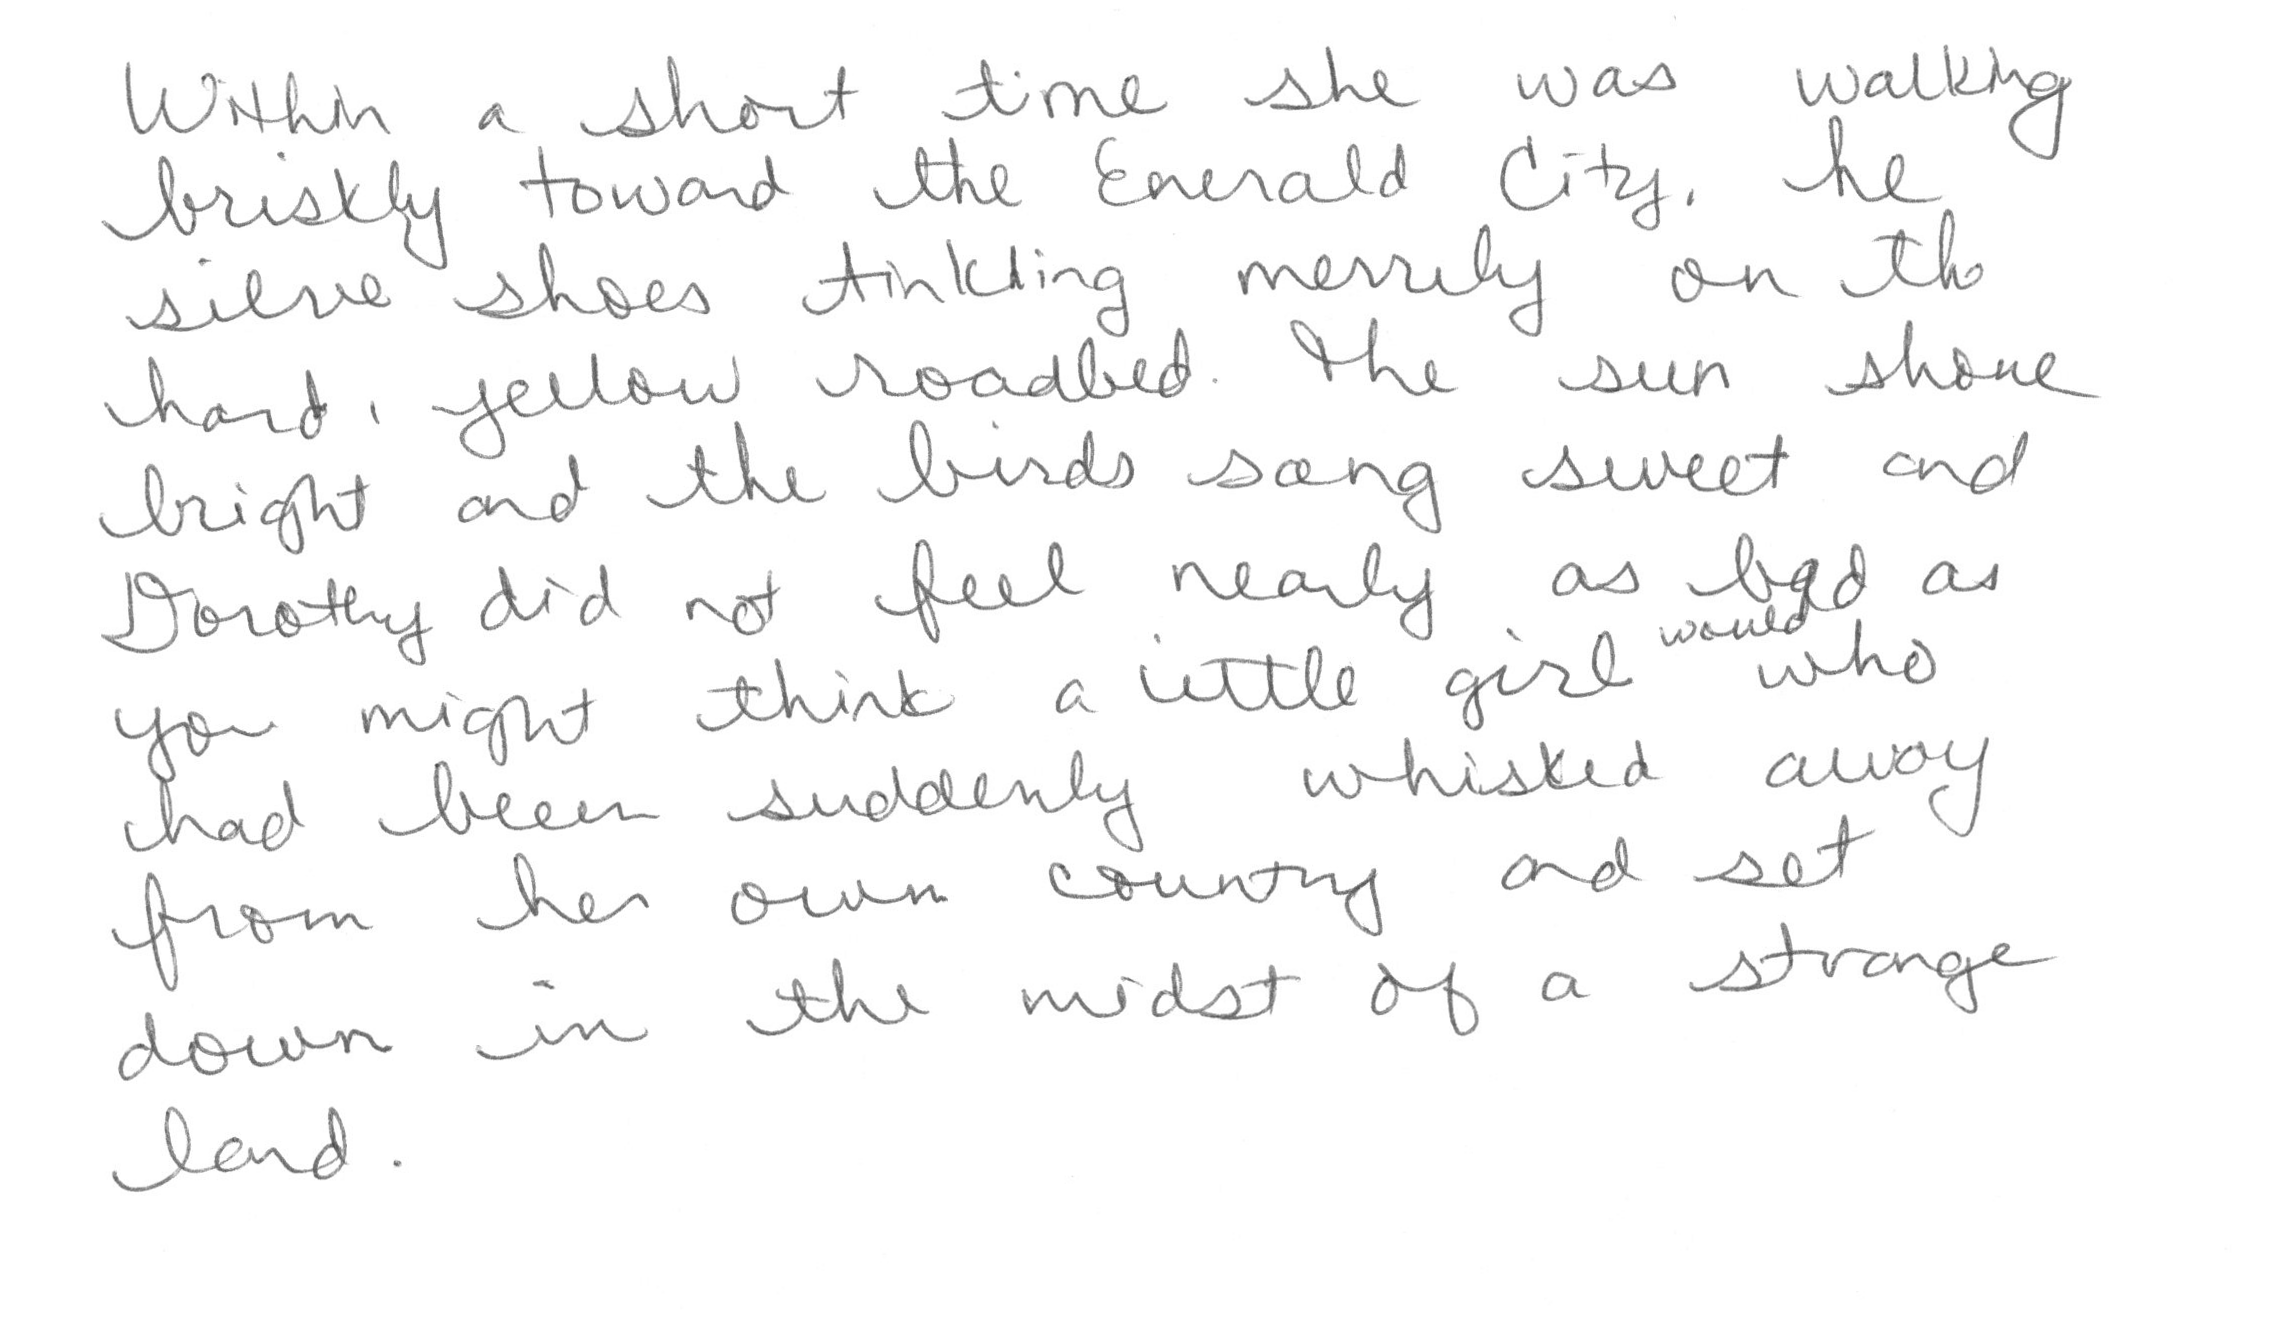 Within a short time she was walking
briskly toward the Emerald City, he
silve shoes tinkling merrily on th
hard, yellow roadbed. The sun shone
bright and the birds sang sweet and
Dorothy did not feel nearly as bad as
you might think a little girl would who
had been suddenly whisked away
from her own country and set
down in the midst of a strange
land.